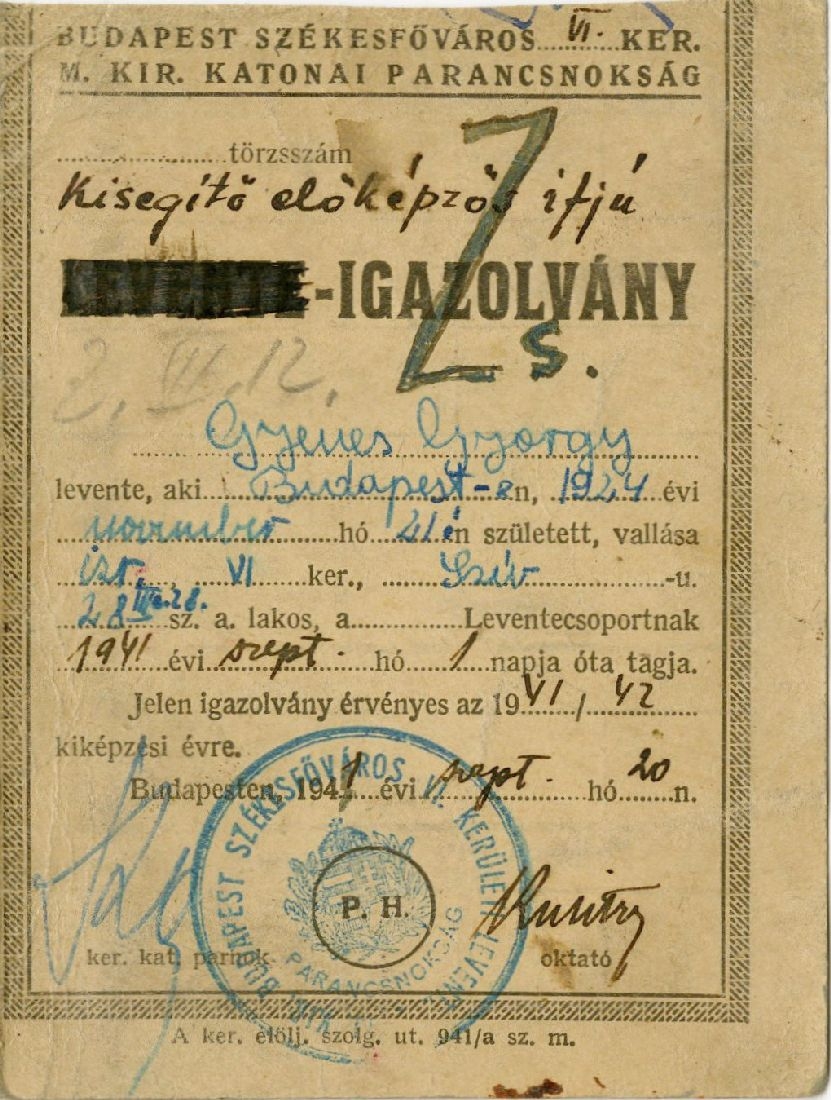 BUDAPEST SZÉKESFŐVÁROS VI. KER.
M. KIR. KATONAI PARANCSNOKSÁG
törzsszám
Kisegítő előképzős ifjú
LEVENTE-IGAZOLVÁNY
Zs.
2. VII. 12.
Gyenes György
levente, aki Budapest-en, 1924 évi
november hó 21én született, vallása
izr. VI ker., Szív -u.
28 sz. a. lakos, a Leventecsoportnak
1941 évi szept. hó 1 napja óta tagja.
Jelen igazolvány érvényes az 1941/42
kiképzési évre.
Budapesten, 1941 évi szept. hó 20 n.
BUDAPEST SZÉKESFŐVÁROS VI. KERÜLETI LEVENTE
PARANCSNOKSÁG
P. H.
ker. kat. parnok
oktató
A ker. előlj. szolg. ut. 941/a sz. m.